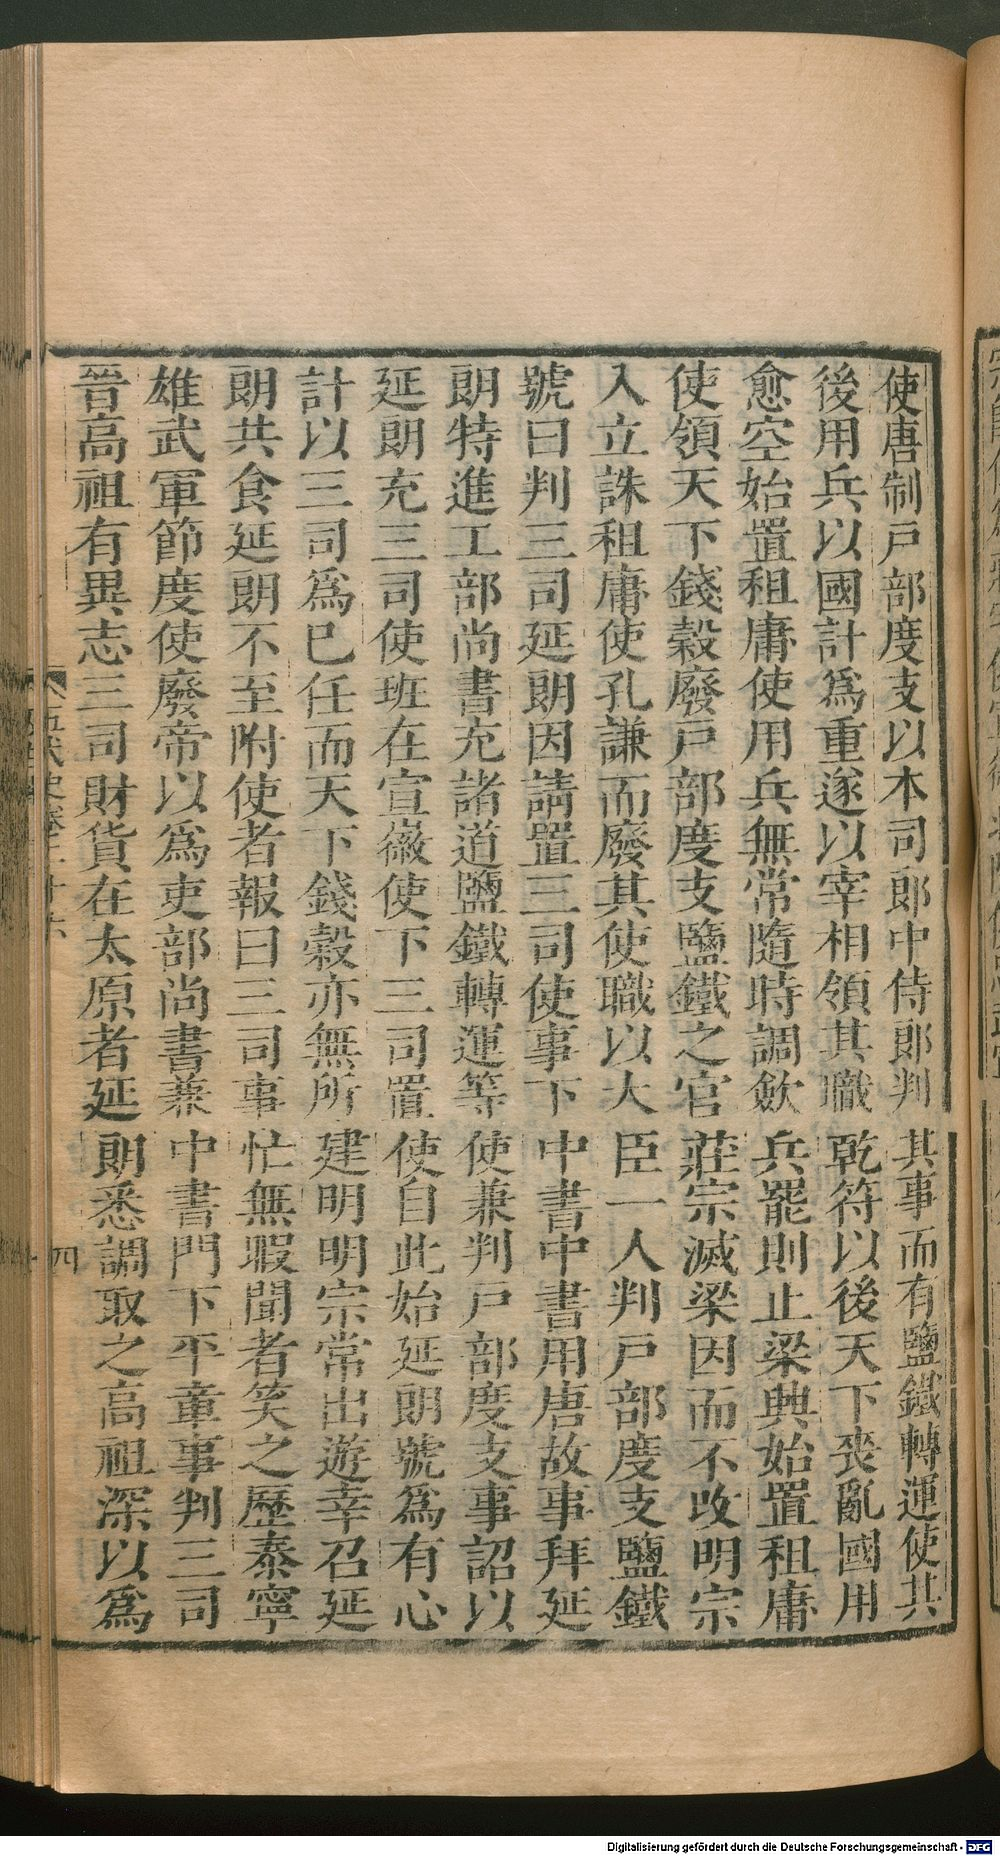 使唐制戸部度支以本司郎中侍郎判其事而有鹽鐵轉運使其
後用兵以國計爲重遂以宰相領其職乾符以後天下喪亂國用
愈空始置租庸使用兵無常隨時調斂兵罷則止梁興始置租庸
使領天下錢穀廢戸部度支鹽鐵之官莊宗滅梁因而不改明宗
入立誅租庸使孔謙而廢其使職以大臣一人判戸部度支鹽鐵
號曰判三司延朗因請置三司使事下中書中書用唐故事拜延
朗特進工部尚書充諸道鹽鐵轉運等使兼判戸部度支事詔以
延朗充三司使班在宣徽使下三司置使自此始延朗號爲有心
計以三司爲已任而天下錢穀亦無所建明明宗常出遊幸召延
朗共食延朗不至附使者報曰三司事忙無暇聞者笑之歷泰寧
雄武軍節度使廢帝以爲吏部尚書兼中書門下平章事判三司
晉高祖有異志三司財貨在太原者延朗悉調取之高祖深以爲
四
Digitalisierung gefördert durch die Deutsche Forschungsgemeinschaft - DFG